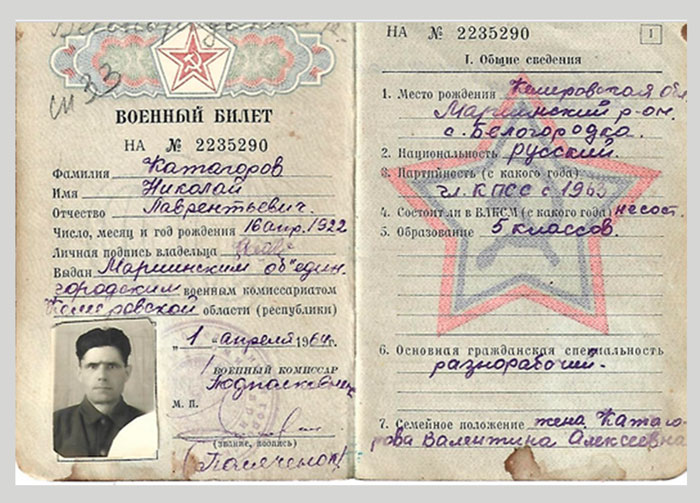 СИ 33
ВОЕННЫЙ БИЛЕТ
НА № 2235290
Фамилия Катагоров
Имя Николай
Отчество Лаврентьевич.
Число, месяц и год рождения 16 апр. 1922
Личная подпись владельца
Выдан Мариинским об'един.
городским военным комиссариатом
Кемеровской области (республики)
„ 1 " апреля 1964 г.
ВОЕННЫЙ КОМИССАР
Подполковник
М. П.
(звание, подпись)
НА № 2235290
1
I. Общие сведения
1. Место рождения Кемеровская обл
Мариинский р-он.
с. Белогородка.
2. Национальность русский.
3. Партийность (с какого года)
чл. КПСС с 1963
4. Состоит ли в ВЛКСМ (с какого года) не сост.
5. Образование 5 классов.
6. Основная гражданская специальность
разнорабочий.
7. Семейное положение жена Катаго-
рова Валентина Алексеевна